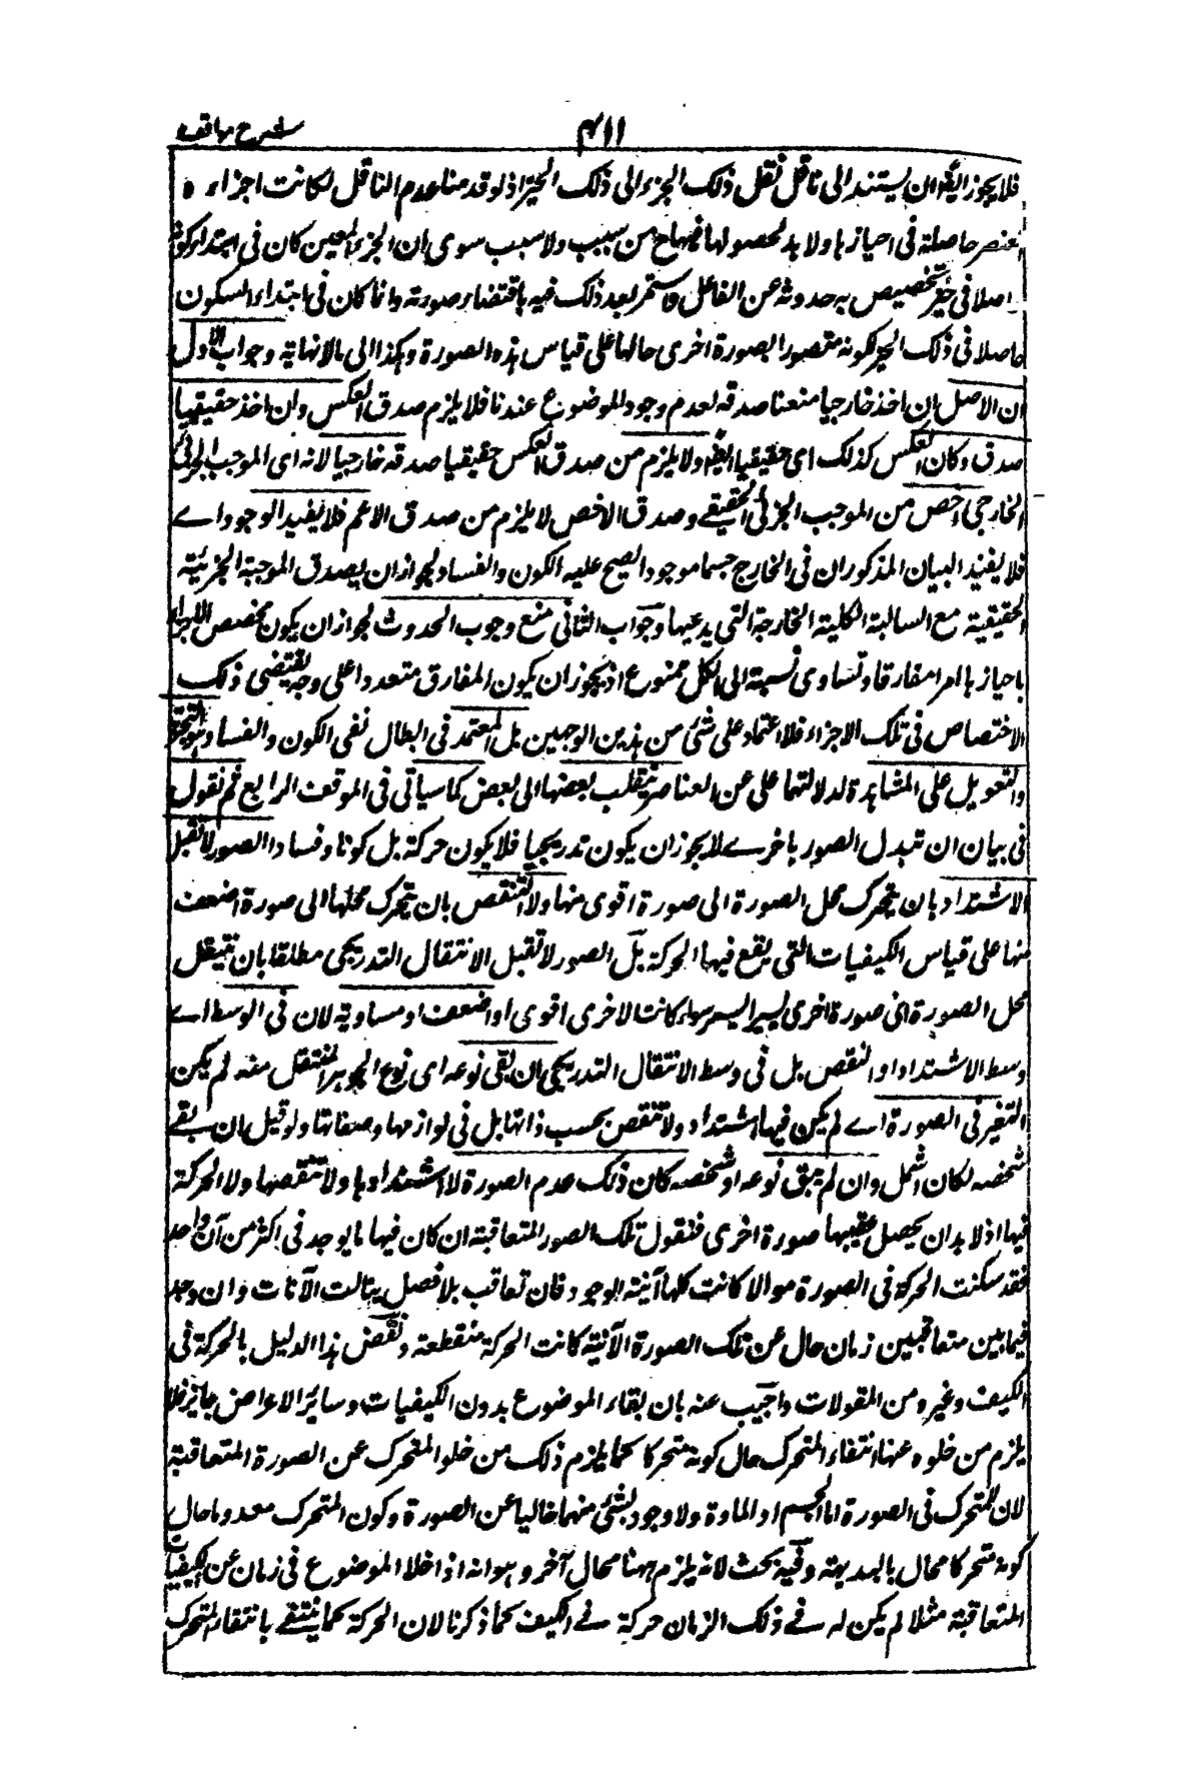 شرح مواقف
٤١١
فلا يجوز ايضا ان يستند الى ناقل نقل ذلك الجزء الى ذلك الحيز اذ لو قدرنا عدم الناقل لكانت اجزاء
العنصر حاصلة فى احيازها ولا بد لحصولها فيها ح من سبب ولا سبب سوى ان الجزء المعين كان فى ابتداء كونه
حاصلا فى حيز تخصيص به حدوثه عن الفاعل فاستمر بعد ذلك فيه باقتضاء صورته وانما كان فى ابتداء السكون
حاصلا فى ذلك الحيز لكونه متصورا بصورة اخرى حالها على قياس هذه الصورة وهكذا الى مالانهاية وجواب الاول
ان الاصل ان اخذ خارجيا منعنا صدقه لعدم وجود الموضوع عندنا فلا يلزم صدق العكس وان اخذ حقيقيا
صدق وكان العكس كذلك اى حقيقيا ايضا ولا يلزم من صدق العكس حقيقيا صدقه خارجيا لانه اى الموجب الجزئى
الخارجى اخص من الموجب الجزئى الحقيقے وصدق الاخص لا يلزم من صدق الاعم فلا يفيد الوجود اے
فلا يفيد البيان المذكور ان فى الخارج جسما موجودا يصح عليه الكون والفساد لجواز ان يصدق الموجبة الجزئية
الحقيقية مع السالبة الكلية الخارجة التى يدعيها وجواب الثانى منع وجوب الحدوث لجواز ان يكون مخصص الاجزاء
باحيازها امرا مفارقا وتساوى نسبة الى الكل ممنوع اذ يجوز ان يكون المفارق متعددا على وجه يقتضى ذلك
الاختصاص فى تلك الاجزاء فلا اعتماد على شئ من هذين الوجهين بل المعتمد فى ابطال نفى الكون والفساد هو التجربة
والتعويل على المشاهدة لدلالتها على عن العناصر ينقلب بعضها الى بعض كما سياتى فى الموقف الرابع ثم نقول
فى بيان ان تبدل الصور باخرے لا يجوز ان يكون تدريجيا فلا يكون حركة بل كونا وفسادا الصور لا تقبل
الاشتداد بان يتحرك محل الصورة الى صورة اقوى منها ولا التنقص بان يتحرك محلها الى صورة اضعف
منها على قياس الكيفيات التى يقع فيها الحركة بل الصور لا تقبل الانتقال التدريجى مطلقا بان ينتقل
محل الصورة الى صورة اخرى يسيرا يسيرا سواء كانت الاخرى اقوى او اضعف او مساوية لان فى الوسط اے
وسط الاشتداد او التنقص بل فى وسط الانتقال التدريجى ان بقى نوعه اى نوع الجوهر المنتقل منه لم يكن
التغير فى الصورة اے لم يكن فيها اشتداد ولا تنقص بحسب ذاتها بل فى لوازمها وصفاتها ولو قيل ان بقے
شخصه لكان اشمل وان لم يبق نوعه او شخصه كان ذلك عدم الصورة لا اشتدادها ولا تنقصها ولا الحركة
فيها اذ لا بد ان يحصل عقيبها صورة اخرى فنقول تلك الصور المتعاقبة ان كان فيها ما يوجد فى اكثر من آن واحد
فقد سكنت الحركة فى الصورة م والا كانت كلها آنية الوجود فان تعاقب بلا فصل يتالت الآنات وان وجد
فيما بين متعاقبين زمان خال عن تلك الصورة الآنية كانت الحركة منقطعة ونقض هذا الدليل بالحركة فى
الكيف وغيره من المقولات واجيب عنه بان بقاء الموضوع بدون الكيفيات وسائر الاعراض جايز فلا
يلزم من خلوه عنها انتفاء المتحرك حال كونه متحركا كما يلزم ذلك من خلو المتحرك عن الصورة المتعاقبة
لان المتحرك فى الصورة اما الجسم او المادة ولا وجود لشئ منهما خاليا عن الصورة وكون المتحرك معدوما حال
كونه متحركا محال بالبديهة وفيه بحث لانه يلزم ههنا محال آخر وهو انه اذا خلا الموضوع فى زمان عن الكيفيات
المتعاقبة مثلا لم يكن له فے ذلك الزمان حركة فے الكيف كما ذكرنا لان الحركة كما ينتفے بانتفاء المتحرك